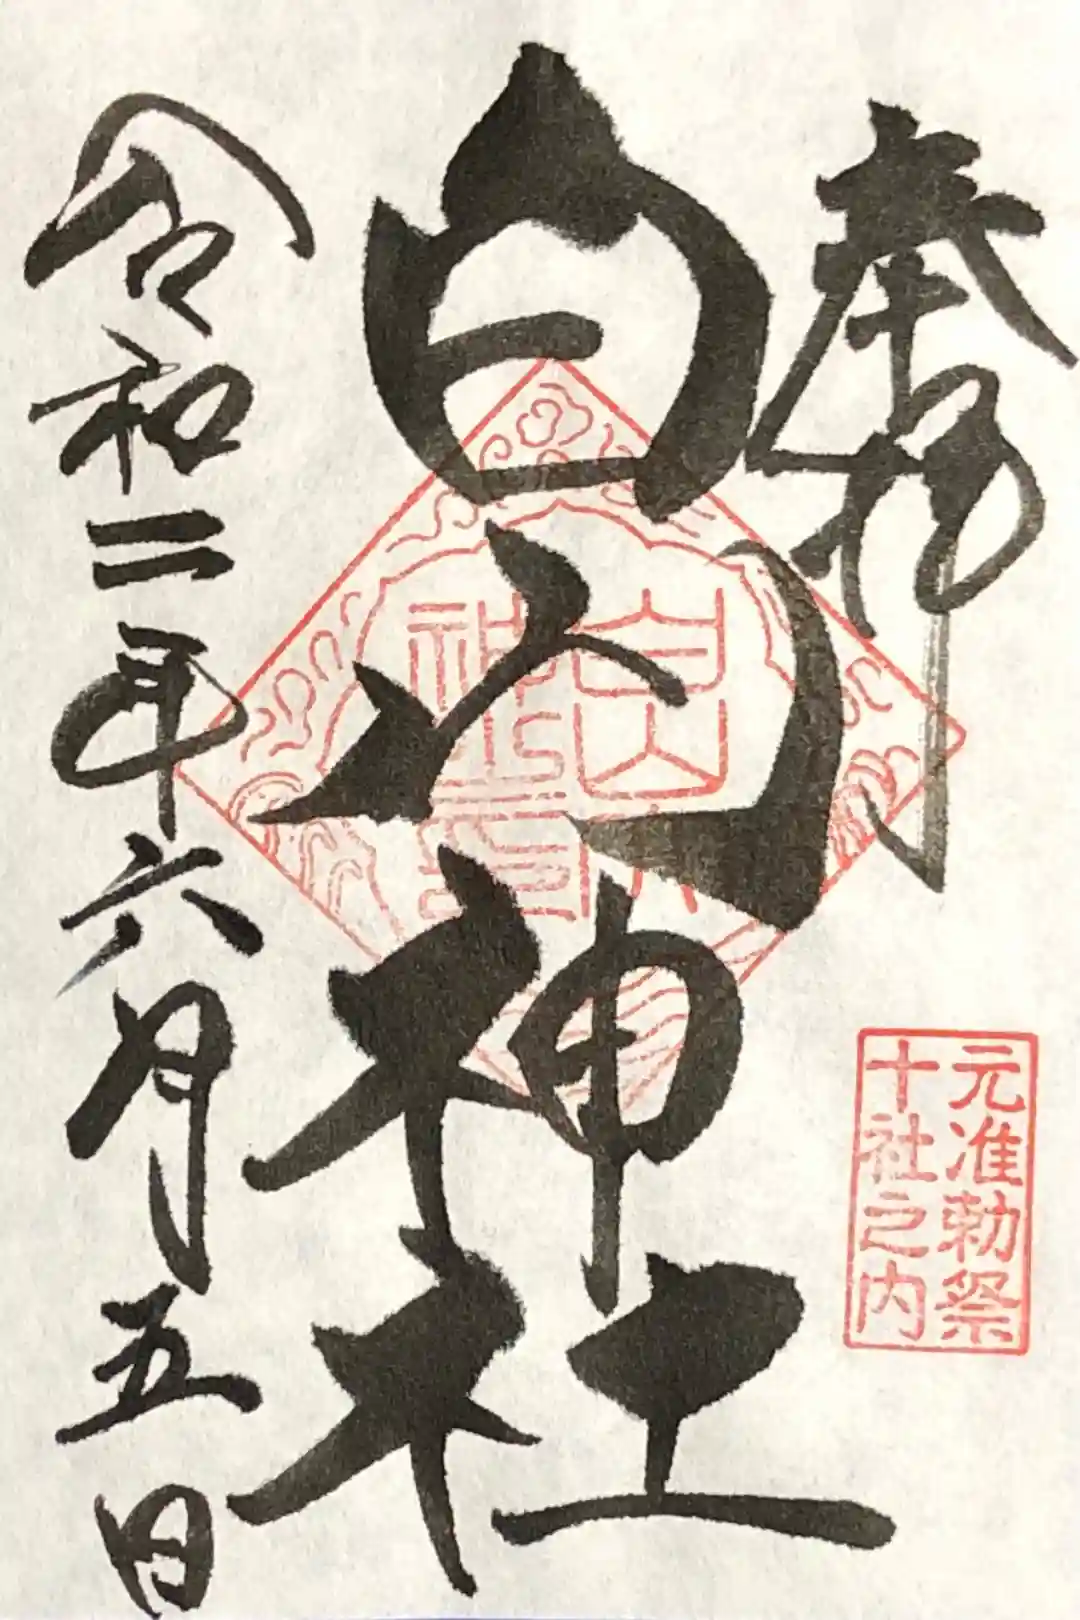 奉拝
白山神社
令和二年六月五日
元准勅祭
十社之内
白山
神社